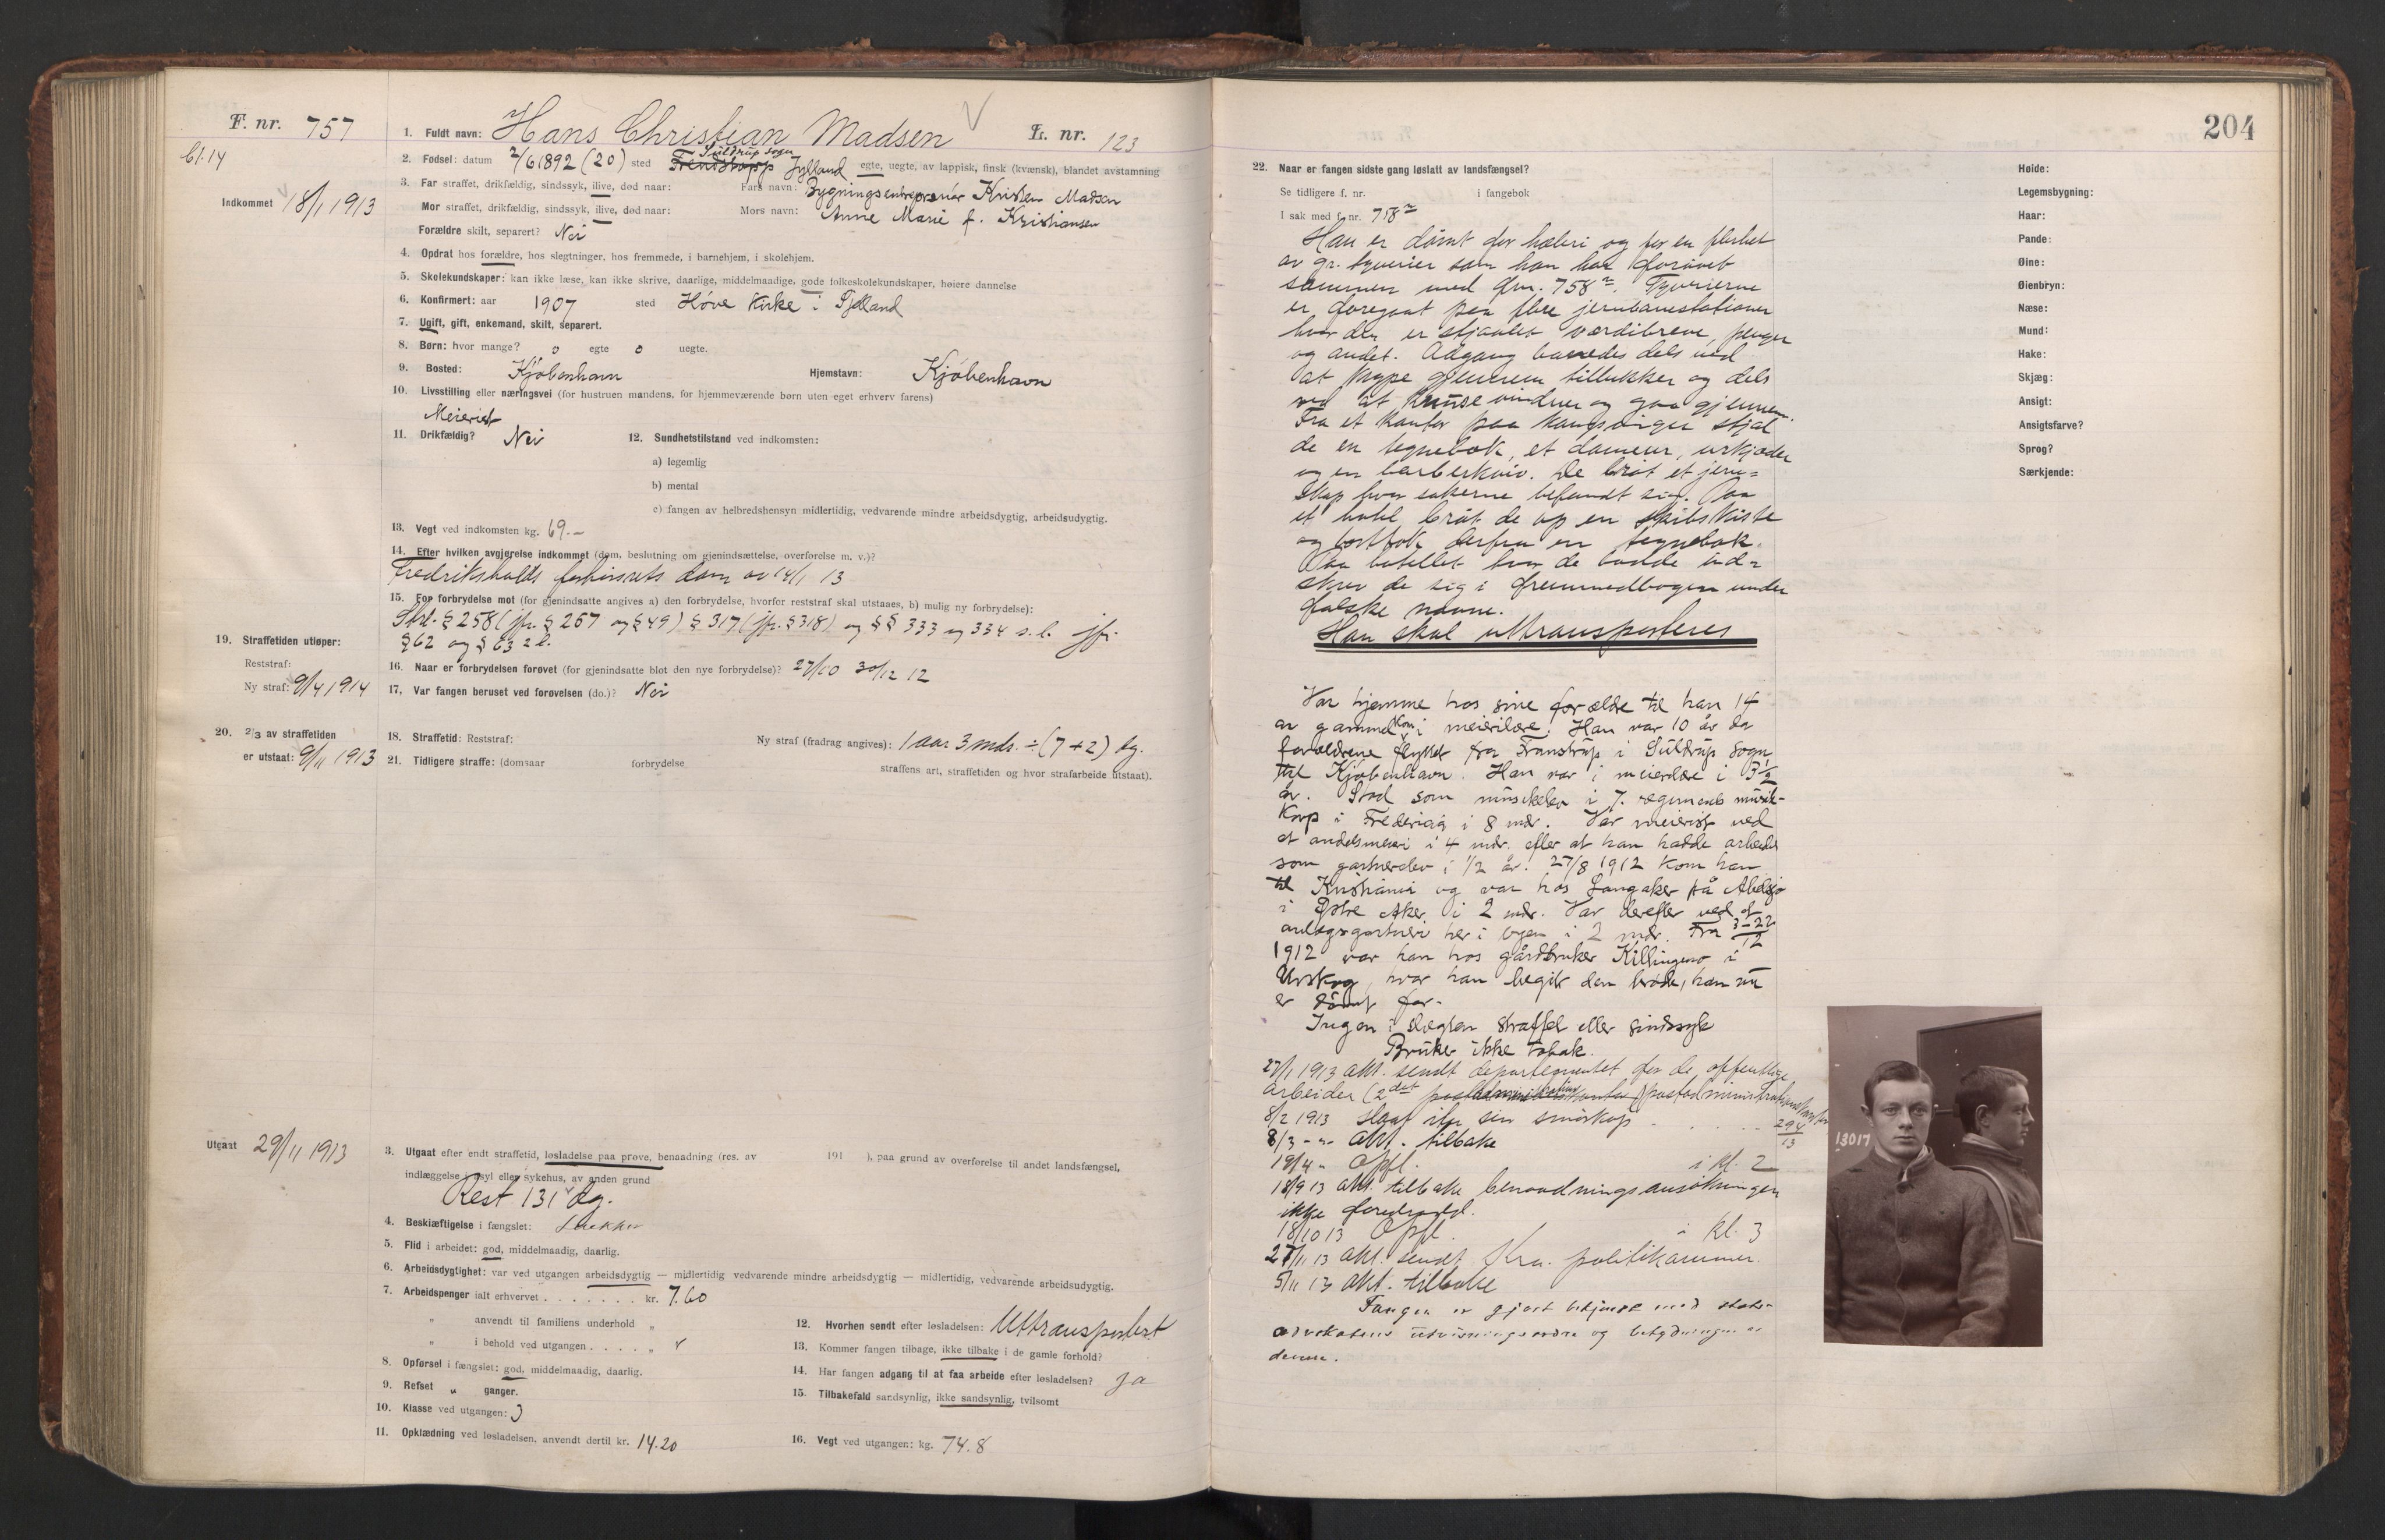 F. nr. 757
bl. 14
1. Fuldt navn: Hans Christian Madsen V L. nr. 123
Suldrup sogn
2. Fødsel: datum 2/6 1892 (20) sted Jylland egte, uegte, av lappisk, finsk (kvænsk), blandet avstamning
Indkommet 18/1 1913
3. Far straffet, drikfældig, sindssyk, ilive, død naar: Fars navn: Bygningsentreprenør Kristen Madsen
Mor straffet, drikfældig, sindssyk, ilive, død naar: Mors navn: Anne Marie f. Kristiansen
Forældre skilt, separert? Nei
4. Opdrat hos forældre, hos slegtninger, hos fremmede, i barnehjem, i skolehjem.
5. Skolekundskaper: kan ikke læse, kan ikke skrive, daarlige, middelmaadige, gode folkeskolekundskaper, høiere dannelse
6. Konfirmert: aar 1907 sted Høve Kirke i
7. Ugift, gift, enkemand, skilt, separert.
8. Børn: hvor mange? 0 egte 0 uegte.
9. Bosted: Kjøbenhavn Hjemstavn: Kjøbenhavn
10. Livsstilling eller næringsvei (for hustruen mandens, for hjemmeværende børn uten eget erhverv farens)
Meierist
11. Drikfældig? Nei 12. Sundhetstilstand ved indkomsten:
a) legemlig
b) mental
c) fangen av helbredshensyn midlertidig, vedvarende mindre arbeidsdygtig, arbeidsudygtig.
13. Vegt ved indkomsten kg. 69.-
14. Efter hvilken avgjørelse indkommet (dom, beslutning om gjenindsættelse, overførelse m. v.)?
Fredrikshalds forhørsrets dom av 14/1 13
15. For forbrydelse mot (for gjenindsatte angives a) den forbrydelse, hvorfor reststraf skal utstaaes, b) mulig ny forbrydelse):
Strl. § 258 (jfr. § 257 og § 49) § 317 (jfr. § 318) og §§ 333 og 334 s.l. jfr.
§ 62 og § 63 2 l.
16. Naar er forbrydelsen forøvet (for gjenindsatte blot den nye forbrydelse)? 27/10 30/12 12
17. Var fangen beruset ved forøvelsen (do.)? Nei
19. Straffetiden utløper:
Reststraf:
Ny straf: 9/4 1914
20. 2/3 av straffetiden
er utstaat: 9/11 1913
18. Straffetid: Reststraf: Ny straf (fradrag angives): 1 aar 3 mdr. ÷ (7 + 2) dg.
21. Tidligere straffe: (domsaar forbrydelse straffens art, straffetiden og hvor strafarbeide utstaat).
Utgaat 29/11 1913
3. Utgaat efter endt straffetid, løsladelse paa prøve, benaadning (res. av 191 ), paa grund av overførelse til andet landsfængsel,
indlæggelse i asyl eller sykehus, av anden grund
Rest 131 dg.
4. Beskjæftigelse i fængslet:
5. Flid i arbeidet: god, middelmaadig, daarlig.
6. Arbeidsdygtighet: var ved utgangen arbeidsdygtig — midlertidig vedvarende mindre arbeidsdygtig — midlertidig, vedvarende arbeidsudygtig.
7. Arbeidspenger ialt erhvervet . . . . . . . kr. 7.60
" anvendt til familiens underhold "
" i behold ved utgangen . . . . "
8. Opførsel i fængslet: god, middelmaadig, daarlig.
9. Refset " ganger.
10. Klasse ved utgangen: 3
11. Opklædning ved løsladelsen, anvendt dertil kr. 14.20
12. Hvorhen sendt efter løsladelsen: Uttransportert
13. Kommer fangen tilbage, ikke tilbake i de gamle forhold?
14. Har fangen adgang til at faa arbeide efter løsladelsen? Ja
15. Tilbakefald sandsynlig, ikke sandsynlig, tvilsomt
16. Vegt ved utgangen: kg. 74.8
204
22. Naar er fangen sidste gang løslatt av landsfængsel?
Se tidligere f. nr. i fangebok
I sak med f. nr. 758
Han er dømt for hæleri og for en flerhet
av gr. tyverier som han har forøvet
sammen med fnr. 758. Tyverierne
er foregaat paa flere jernbanestationer
hvor der er stjaalet værdibreve, penger
og andet. Adgang banedes dels ved
at krype gjennem billetluker og dels
ved at knuse vinduer og gaa gjennem.
Fra et kontor paa Kongsvinger stjal
de en tegnebok, et dameur, urkjæder
og en barberkniv. De brøt et jern-
skap hvor sakerne befandt sig. Paa
et hotel brøt de op en skibskiste
og borttok derfra en tegnebok.
Paa hotellet hvor de bodde ind-
skrev de sig i fremmedbogen under
falske navne.
Han skal uttransporteres
Var hjemme hos sine forældre til han 14
år gammel kom i meierilære. Han var 10 år da
forældrene flyttet fra Franstrup i Suldrup sogn
til Kjøbenhavn. Han var i meierilære i 3 1/2
år. Stod som musikelev i 7. regiments musik-
korp i Fredericia i 8 mdr. Var meierist ved
et andelsmeieri i 4 mdr. efter at han hadde arbeidet
som gartnerelev i 1/2 år. 27/8 1912 kom han
til Kristiania og var hos Langaker på
i Østre Aker i 2 mdr. Var derefter ved et
anlægsgartneri her i byen i 2 mdr. Fra 3-22/12
1912 var han hos gårdbruker Killingmo i
Urskog, hvor han begik den brøde, han nu
er dømt for.
Ingen i slegten straffet eller sindssyk
Bruker ikke tobak.
27/1 1913 akt. sendt departementet for de offentlige
arbeider (2det postadministrationskontor)
8/2 1913 . . . . 294/13
8/3 - " - akt. tilbake
18/4 " Opfl. i kl. 2
18/9 13 akt. tilbake benaadningsansøkningen
ikke foredradd.
18/10 13 Opfl. i kl. 3
27/11 13 akt. sendt Kra. politikammer
5/11 13 akt. tilbake
Fangen er gjort bekjendt med stats-
advokatens utvisningsordre og betydningen av
denne.
Høide:
Legemsbygning:
Haar:
Pande:
Øine:
Øienbryn:
Næse:
Mund:
Hake:
Skjæg:
Ansigt:
Ansigtsfarve?
Sprog?
Særkjende:
13017